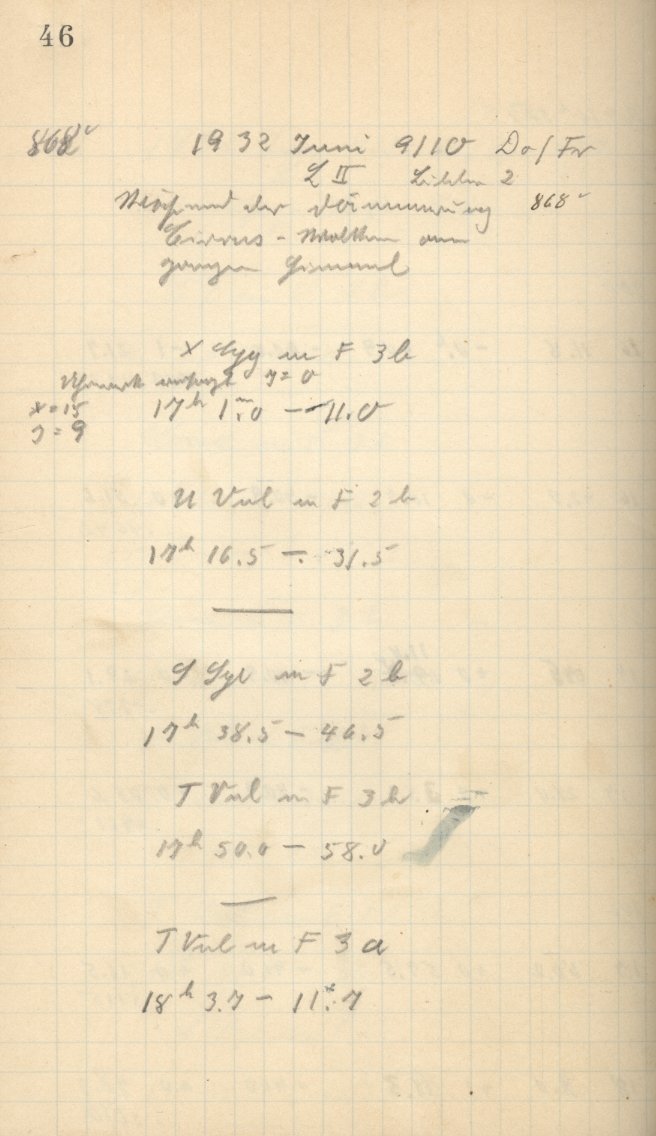 46
868
1932 Juni 9/10 Do/Fr
L II Bilder 2
Während der Dämmerung 868
Cirrus-Wolken am
ganzen Himmel
X Cyg in F 3b
y=0
x=15
17h 1m.0 — 11.0
y=9
U Vul in F 2b
17h 16.5 — 31.5
S Sge in F 2b
17h 38.5 — 46.5
T Vul in F 3b
17h 50.0 — 58.0
T Vul in F 3a
18h 3.7 — 11.7